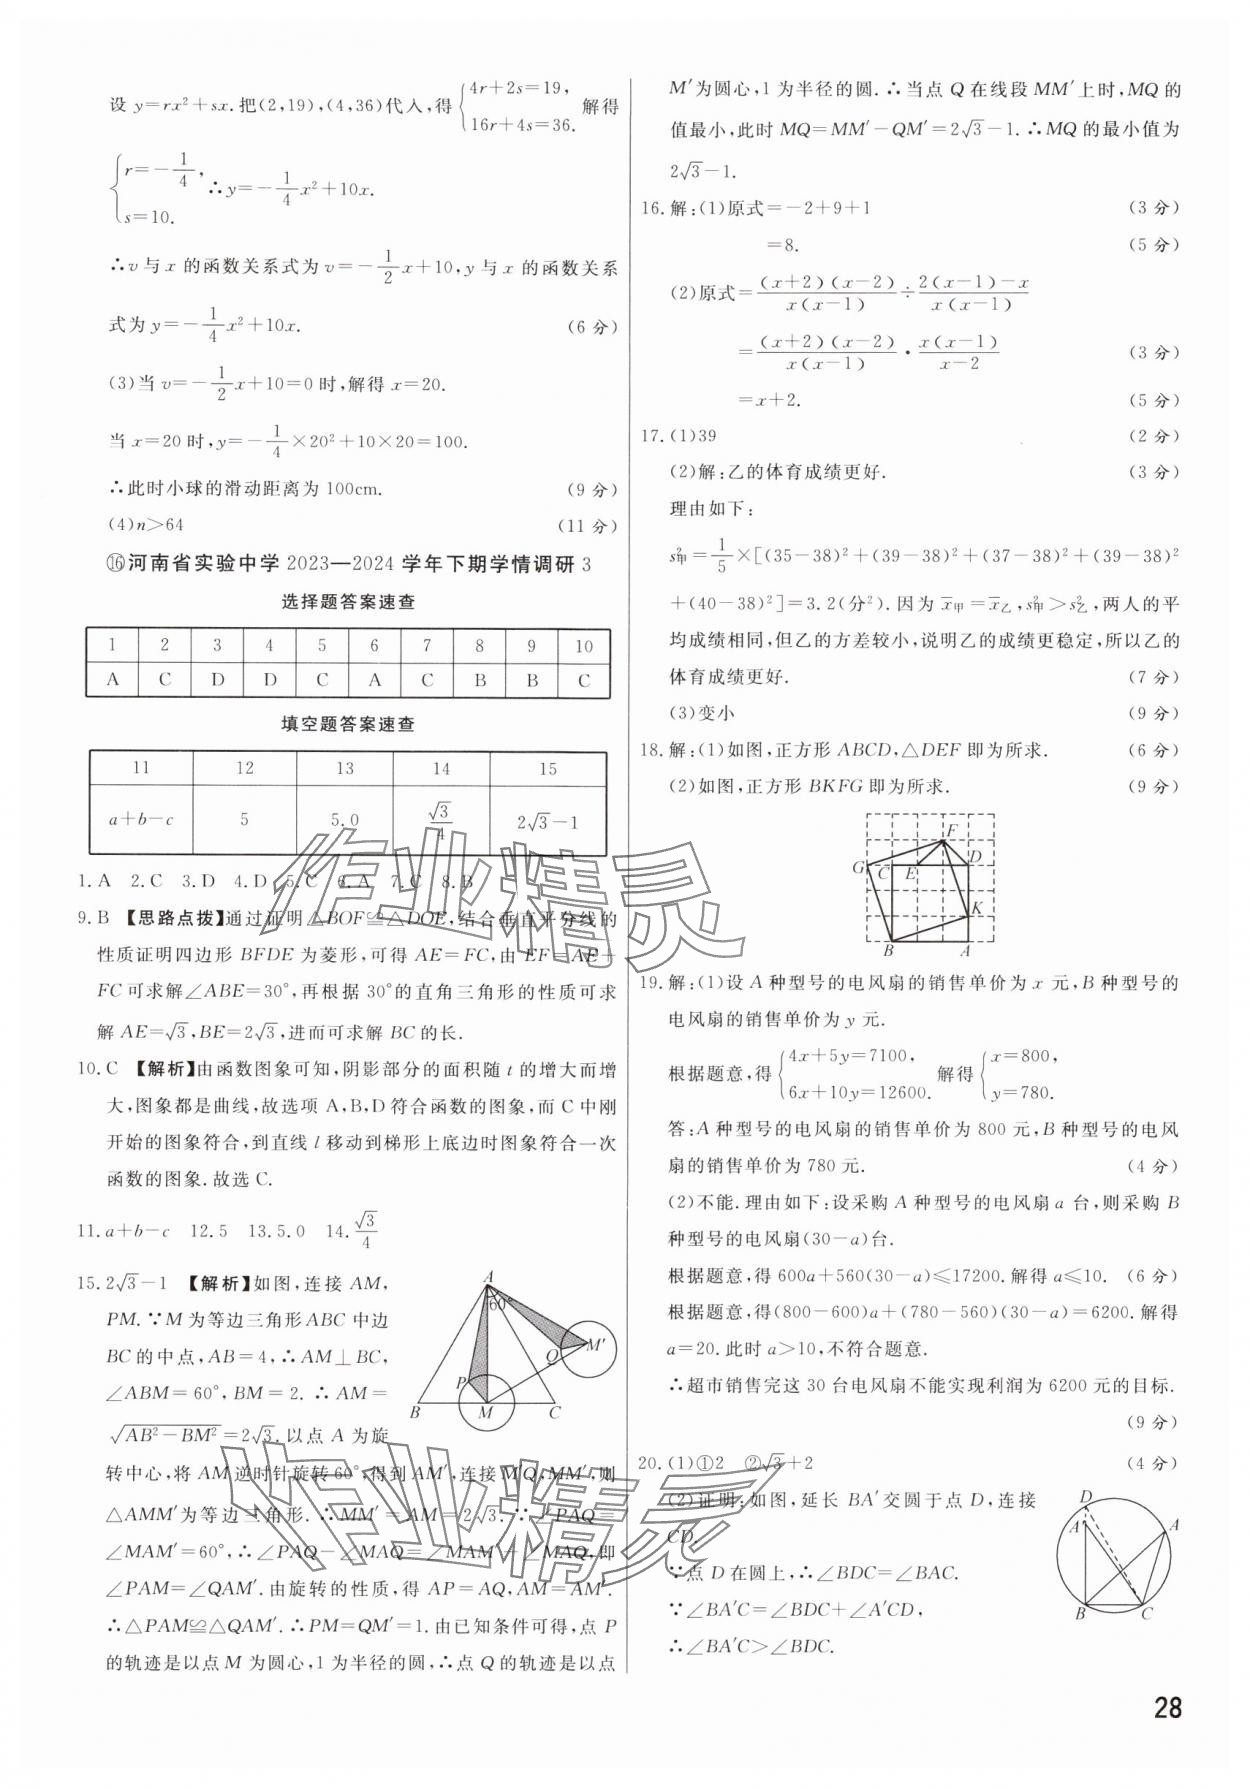 设 y=rx²+sx.把(2,19),(4,36)代入,得{4r+2s=19, 16r+4s=36. 解得
{r=-1/4, s=10. ∴y=-1/4x²+10x.
∴v 与 x 的函数关系式为 v=-1/2x+10,y 与 x 的函数关系
式为 y=-1/4x²+10x. (6 分)
(3)当 v=-1/2x+10=0 时,解得 x=20.
当 x=20 时,y=-1/4×20²+10×20=100.
∴此时小球的滑动距离为 100cm. (9 分)
(4)n>64 (11 分)
⑯河南省实验中学 2023—2024 学年下期学情调研 3
选择题答案速查
1 2 3 4 5 6 7 8 9 10
A C D D C A C B B C
填空题答案速查
11 12 13 14 15
a+b-c 5 5,0 √3/4 2√3-1
1.A 2.C 3.D 4.D 5.C 6.A 7.C 8.B
9.B 【思路点拨】通过证明△BOF≌△DOE,结合垂直平分线的
性质证明四边形 BFDE 为菱形,可得 AE=FC,由 EF=AE+
FC 可求解∠ABE=30°,再根据 30°的直角三角形的性质可求
解 AE=√3,BE=2√3,进而可求解 BC 的长.
10.C 【解析】由函数图象可知,阴影部分的面积随 t 的增大而增
大,图象都是曲线,故选项 A,B,D 符合函数的图象,而 C 中刚
开始的图象符合,到直线 l 移动到梯形上底边时图象符合一次
函数的图象.故选 C.
11.a+b-c 12.5 13.5,0 14.√3/4
15.2√3-1 【解析】如图,连接 AM,
PM.∵M 为等边三角形 ABC 中边
BC 的中点,AB=4,∴AM⊥BC,
∠ABM=60°,BM=2.∴AM=
√(AB²-BM²)=2√3.以点 A 为旋
转中心,将 AM 逆时针旋转 60°,得到 AM′,连接 M′Q,MM′,则
△AMM′为等边三角形.∴MM′=AM=2√3.∵∠PAQ=
∠MAM′=60°,∴∠PAQ-∠MAQ=∠MAM′-∠MAQ,即
∠PAM=∠QAM′.由旋转的性质,得 AP=AQ,AM=AM′.
∴△PAM≌△QAM′.∴PM=QM′=1.由已知条件可得,点 P
的轨迹是以点 M 为圆心,1 为半径的圆,∴点 Q 的轨迹是以点
A
60°
M′
Q
P
B
M
C
M′为圆心,1 为半径的圆.∴当点 Q 在线段 MM′上时,MQ 的
值最小,此时 MQ=MM′-QM′=2√3-1.∴MQ 的最小值为
2√3-1.
16.解:(1)原式=-2+9+1 (3 分)
=8. (5 分)
(2)原式=(x+2)(x-2)/x(x-1)÷2(x-1)-x/x(x-1)
=(x+2)(x-2)/x(x-1)·x(x-1)/x-2 (3 分)
=x+2. (5 分)
17.(1)39 (2 分)
(2)解:乙的体育成绩更好. (3 分)
理由如下:
s²甲=1/5×[(35-38)²+(39-38)²+(37-38)²+(39-38)²
+(40-38)²]=3.2(分²).因为 x̄甲=x̄乙,s²甲>s²乙,两人的平
均成绩相同,但乙的方差较小,说明乙的成绩更稳定,所以乙的
体育成绩更好. (7 分)
(3)变小 (9 分)
18.解:(1)如图,正方形 ABCD,△DEF 即为所求. (6 分)
(2)如图,正方形 BKFG 即为所求. (9 分)
F
G
C
E
D
K
B
A
19.解:(1)设 A 种型号的电风扇的销售单价为 x 元,B 种型号的
电风扇的销售单价为 y 元.
根据题意,得{4x+5y=7100, 6x+10y=12600. 解得{x=800, y=780.
答:A 种型号的电风扇的销售单价为 800 元,B 种型号的电风
扇的销售单价为 780 元. (4 分)
(2)不能.理由如下:设采购 A 种型号的电风扇 a 台,则采购 B
种型号的电风扇(30-a)台.
根据题意,得 600a+560(30-a)≤17200.解得 a≤10. (6 分)
根据题意,得(800-600)a+(780-560)(30-a)=6200.解得
a=20.此时 a>10,不符合题意.
∴超市销售完这 30 台电风扇不能实现利润为 6200 元的目标.
(9 分)
20.(1)①2 ②√3+2 (4 分)
(2)证明:如图,延长 BA′交圆于点 D,连接
CD.
∵点 D 在圆上,∴∠BDC=∠BAC.
∵∠BA′C=∠BDC+∠A′CD,
∴∠BA′C>∠BDC.
D
A′
A
B
C
28
作业精灵
作业精灵